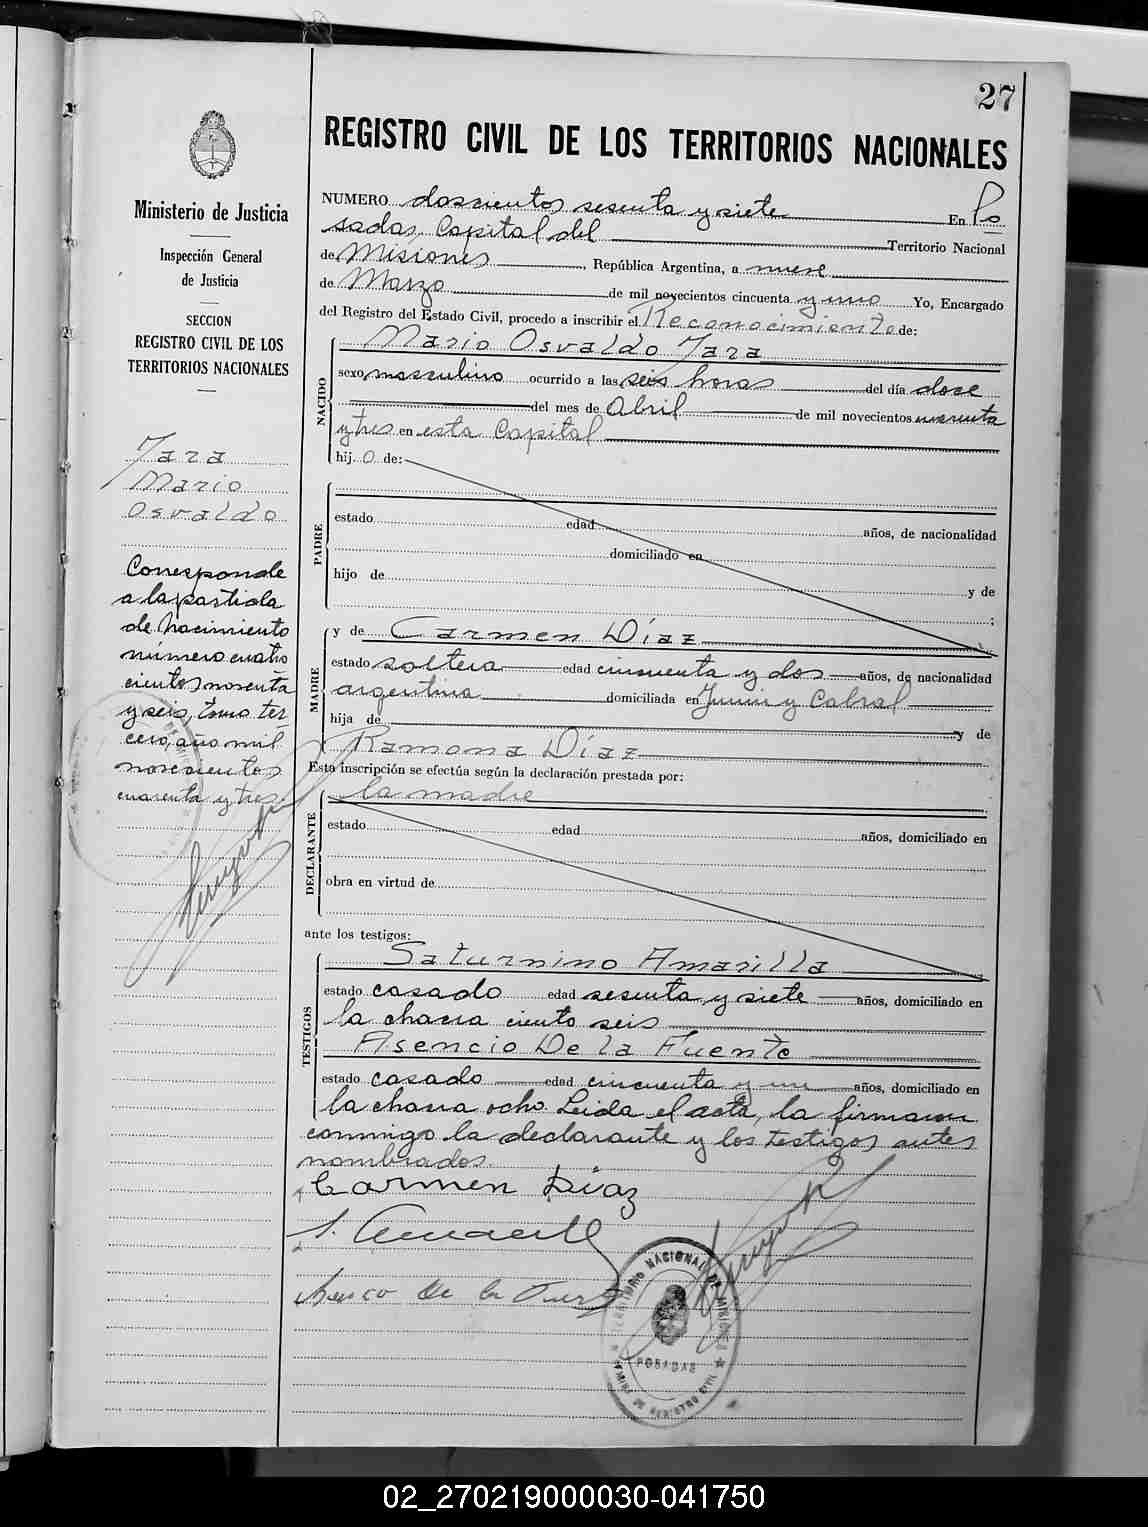 27
REGISTRO CIVIL DE LOS TERRITORIOS NACIONALES
Ministerio de Justicia
Inspección General
de Justicia
SECCION
REGISTRO CIVIL DE LOS
TERRITORIOS NACIONALES
NUMERO doscientos sesenta y siete En Po
sadas, Capital del Territorio Nacional
de Misiones, República Argentina, a nueve
de Marzo de mil novecientos cincuenta y uno Yo, Encargado
del Registro del Estado Civil, procedo a inscribir el Reconocimiento de:
NACIDO
Mario Osvaldo Jara
sexo masculino ocurrido a las seis horas del día doce
del mes de Abril de mil novecientos cuarenta
y tres en esta Capital
hij o de:
Jara
Mario
Osvaldo
Corresponde
a la partida
de Nacimiento
número cuatro
cientos noventa
y seis, tomo ter
cero, año mil
novecientos
cuarenta y tres
PADRE
estado edad años, de nacionalidad
domiciliado en
hijo de y de
;
MADRE
y de Carmen Díaz
estado soltera edad cincuenta y dos años, de nacionalidad
argentina domiciliada en Junin y Cabral
hija de y de
Ramona Díaz
Esta inscripción se efectúa según la declaración prestada por:
DECLARANTE
la madre
estado edad años, domiciliado en
obra en virtud de
ante los testigos:
TESTIGOS
Saturnino Amarilla
estado casado edad sesenta y siete años, domiciliado en
la chacra ciento seis
Asencio De la Fuente
estado casado edad cincuenta y un años, domiciliado en
la chacra ocho. Leida el acta, la firmaron
conmigo la declarante y los testigos antes
nombrados.
Carmen Díaz
S. Amarilla
De la Fuente
TERRITORIO NACIONAL DE MISIONES
POSADAS
REGISTRO CIVIL
02_270219000030-041750